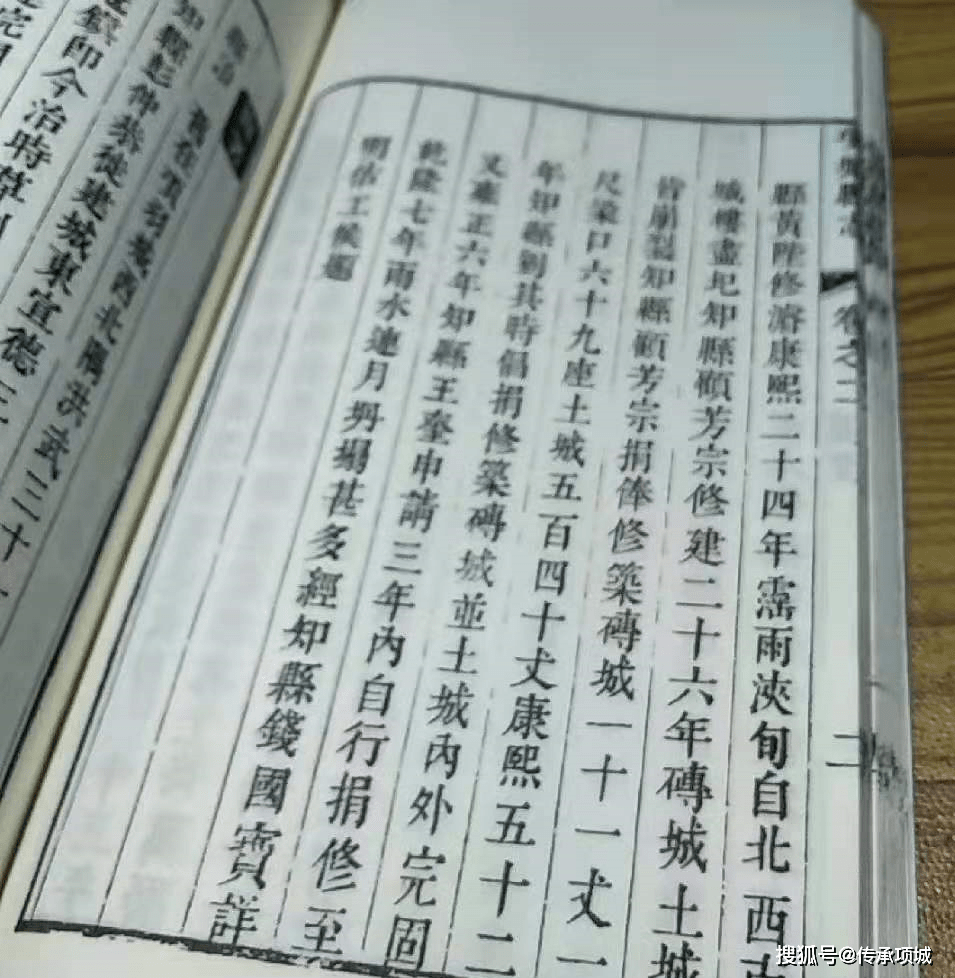 縣志 卷之二 二
縣黃陞修濬康熙二十四年霪雨浹旬自北西
城樓盡圮知縣顧芳宗修建二十六年磚城土城
皆崩裂知縣顧芳宗捐俸修築磚城一十一丈一
尺口六十九座土城五百四十丈康熙五十二
年知縣劉其時倡捐修築磚城並土城內外完固
又雍正六年知縣王申請三年內自行捐修至
乾隆七年雨水連月坍塌甚多經知縣錢國寶詳
明估工候題
縣治 舊在西北隅洪武三十
知縣彭仲恭徙建城東宣德三
鎮即今治時草創
搜狐号@传承项城